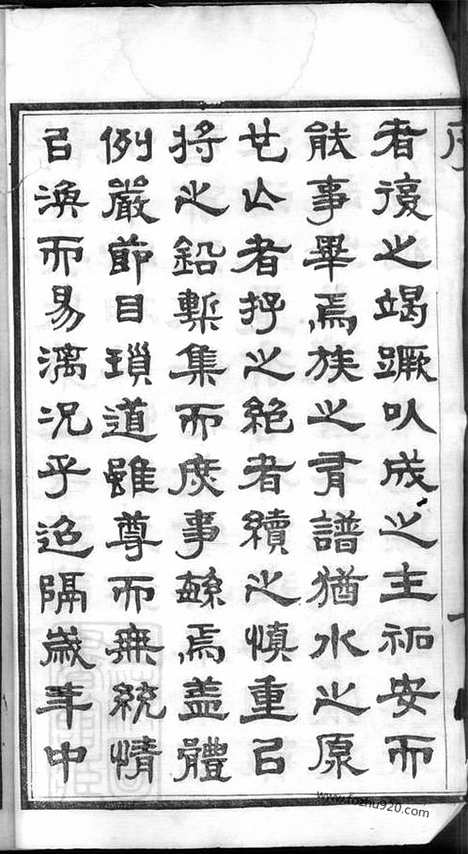 序
者復之竭蹶以成之主祏安而
能事畢焉族之有譜猶水之原
也亾者之絕者續之慎重以
將之鉛槧集而庶事緐焉蓋體
例嚴節目瑣道雖尊而無統情
以渙而易漓況乎迢隔歲年中
www.fozhu920.com